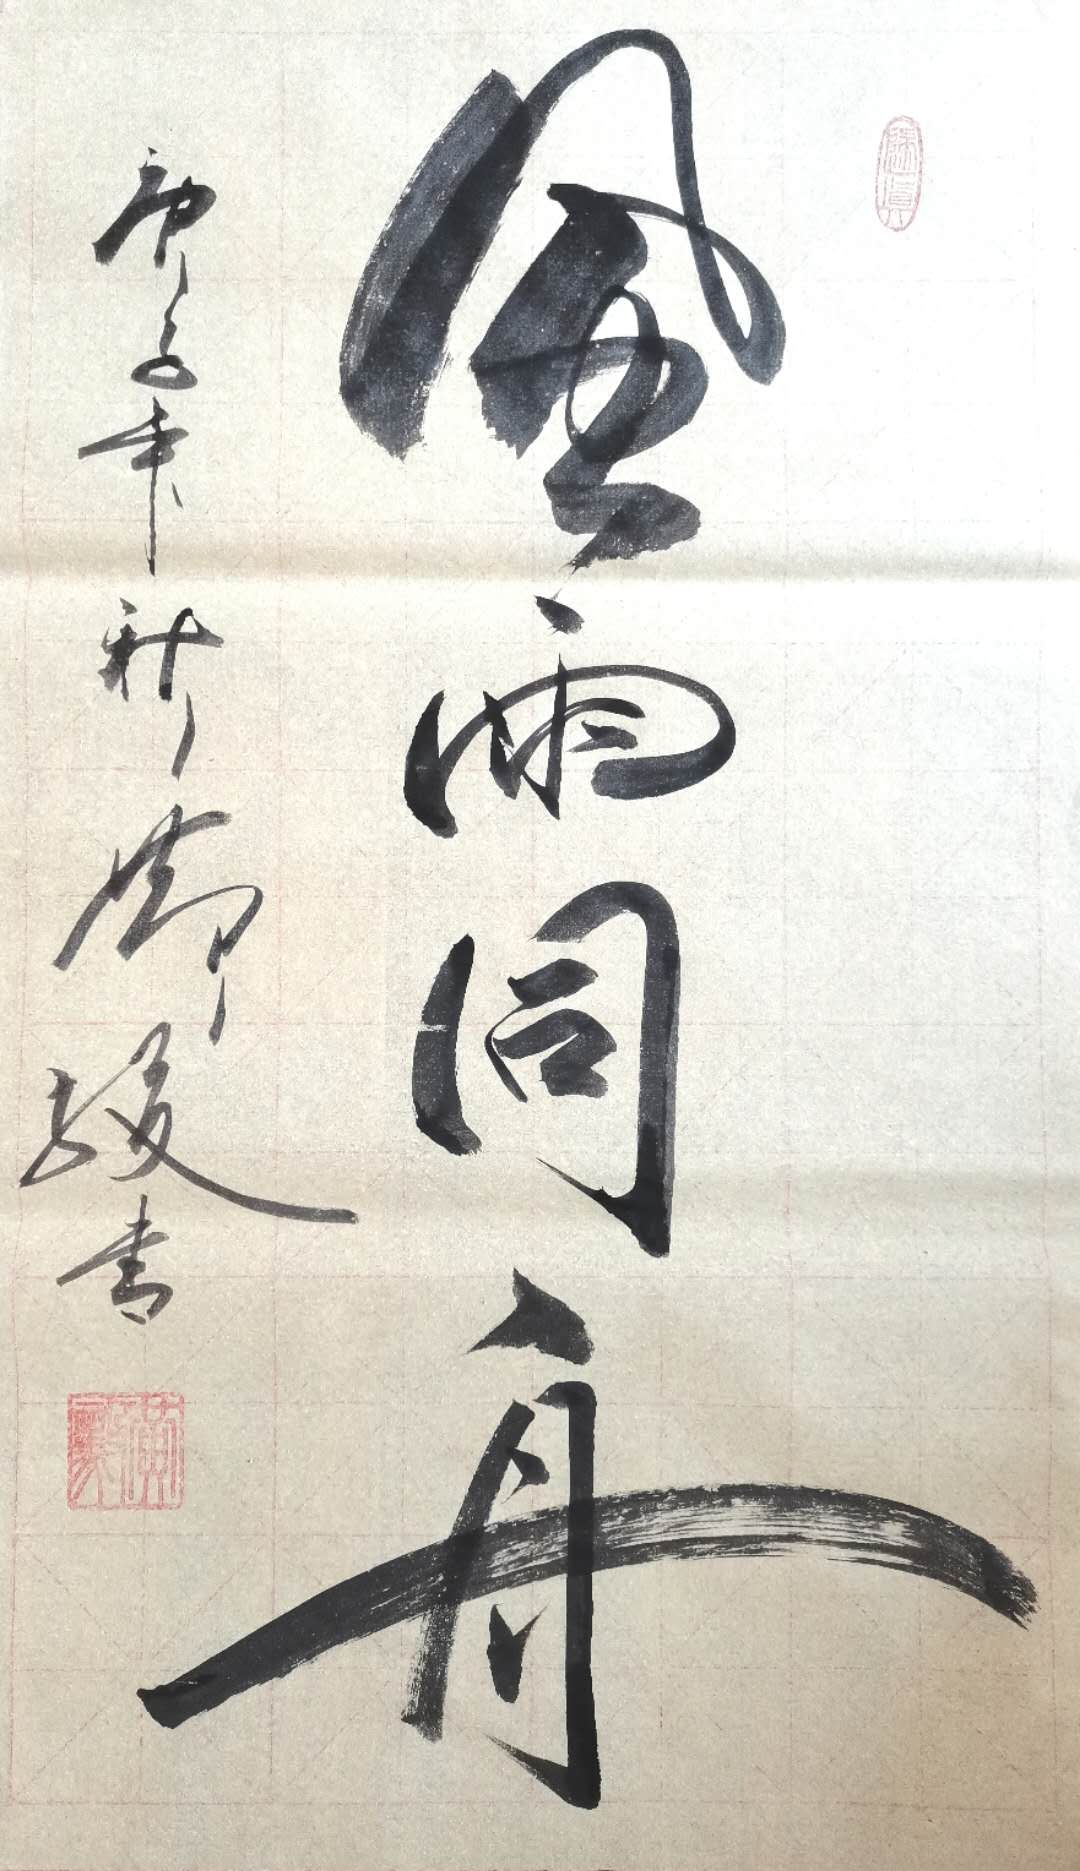 風雨同舟
庚子年秋 御駿書